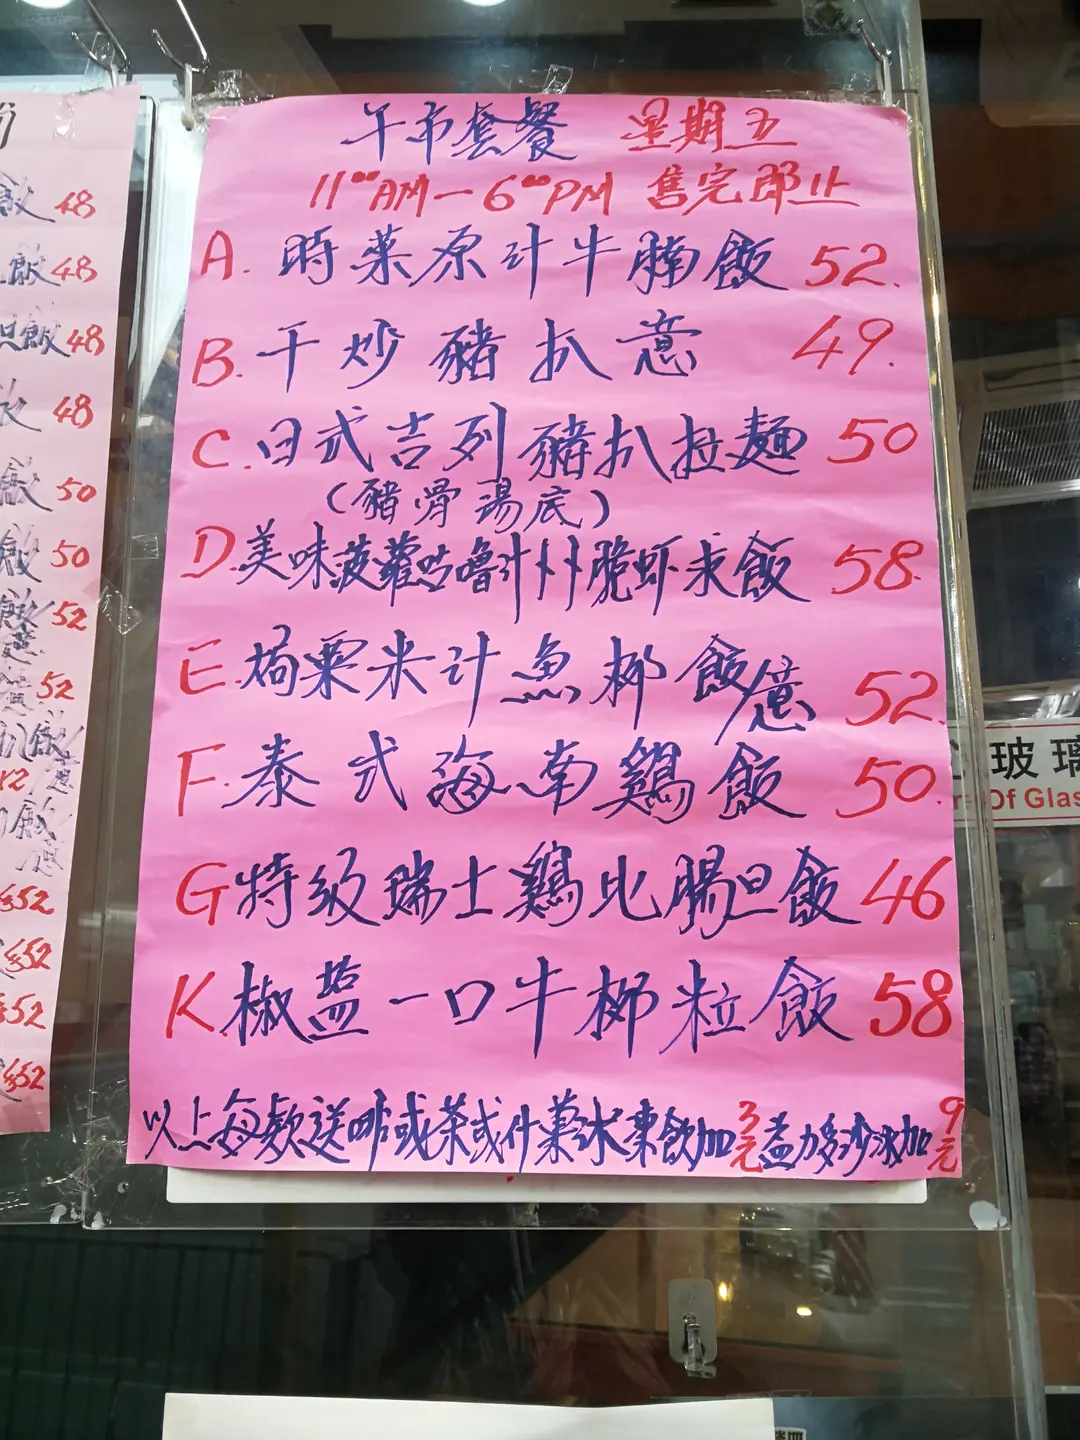 午市套餐 星期五
11⁰⁰AM—6⁰⁰PM 售完即止
A. 時菜原汁牛腩飯 52.
B. 干炒豬扒意 49.
C. 日式吉列豬扒拉麵 50
(豬骨湯底)
D. 美味菠蘿咕嚕汁卜卜脆虾求飯 58.
E. 焗粟米汁魚柳飯/意 52.
F. 泰式海南鷄飯 50.
G 特級瑞士鷄比腸旦飯 46
K. 椒盐一口牛柳粒飯 58
以上每款送啡或茶或什菓冰凍飲加3元益力多沙冰加9元
飯 48
飯 48
旦飯 48
48
飯 50
飯 50
飯/意 52
52
扒飯/意
飯/意
52
52
52
52
玻璃
Of Glas